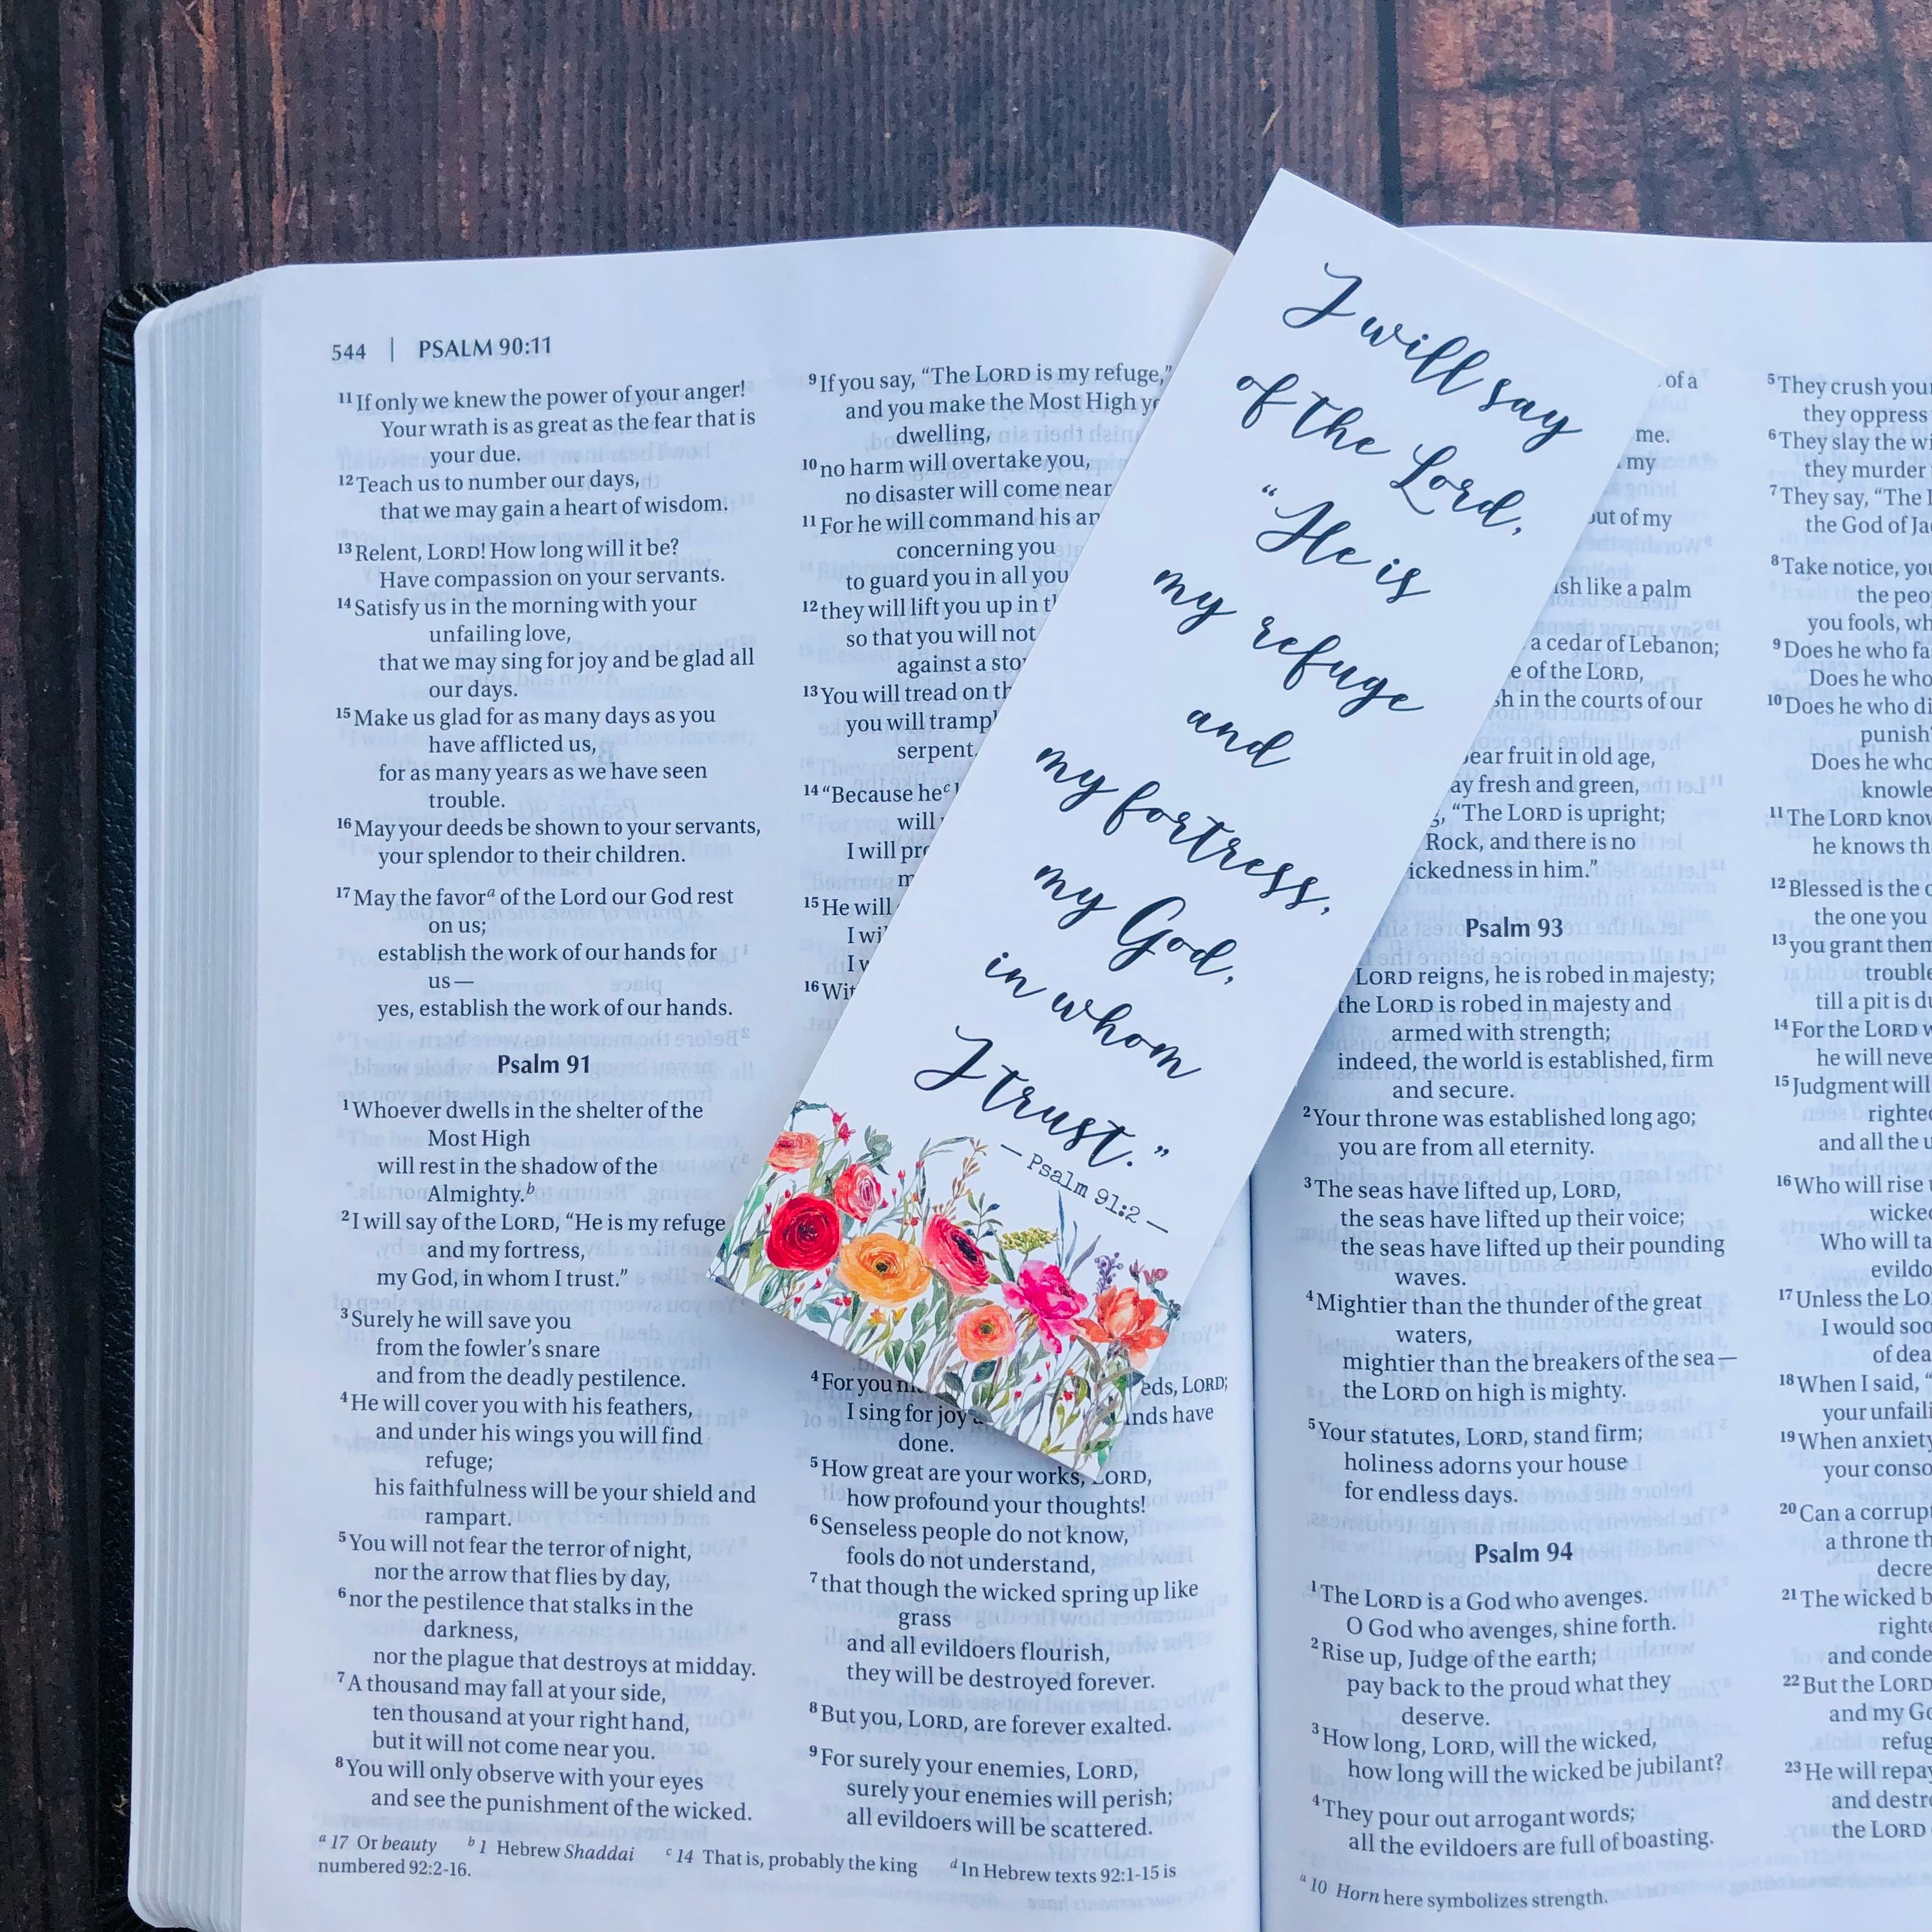 544 | PSALM 90:11
11 If only we knew the power of your anger!
Your wrath is as great as the fear that is
your due.
12 Teach us to number our days,
that we may gain a heart of wisdom.
13 Relent, LORD! How long will it be?
Have compassion on your servants.
14 Satisfy us in the morning with your
unfailing love,
that we may sing for joy and be glad all
our days.
15 Make us glad for as many days as you
have afflicted us,
for as many years as we have seen
trouble.
16 May your deeds be shown to your servants,
your splendor to their children.
17 May the favor a of the Lord our God rest
on us;
establish the work of our hands for
us—
yes, establish the work of our hands.
Psalm 91
1 Whoever dwells in the shelter of the
Most High
will rest in the shadow of the
Almighty. b
2 I will say of the LORD, “He is my refuge
and my fortress,
my God, in whom I trust.”
3 Surely he will save you
from the fowler’s snare
and from the deadly pestilence.
4 He will cover you with his feathers,
and under his wings you will find
refuge;
his faithfulness will be your shield and
rampart.
5 You will not fear the terror of night,
nor the arrow that flies by day,
6 nor the pestilence that stalks in the
darkness,
nor the plague that destroys at midday.
7 A thousand may fall at your side,
ten thousand at your right hand,
but it will not come near you.
8 You will only observe with your eyes
and see the punishment of the wicked.
9 If you say, “The LORD is my refuge,”
and you make the Most High
dwelling,
10 no harm will overtake you,
no disaster will come near
11 For he will command his
concerning you
to guard you in all
12 they will lift you up in
so that you will not
against a
13 You will tread on
you will
serpent.
14 “Because he c
will
I will
15 He will
I
I
16
4 For you
I sing for joy
LORD;
have
done.
5 How great are your works, LORD,
how profound your thoughts!
6 Senseless people do not know,
fools do not understand,
7 that though the wicked spring up like
grass
and all evildoers flourish,
they will be destroyed forever.
8 But you, LORD, are forever exalted.
9 For surely your enemies, LORD,
surely your enemies will perish;
all evildoers will be scattered.
a 17 Or beauty b 1 Hebrew Shaddai c 14 That is, probably the king d In Hebrew texts 92:1-15 is
numbered 92:2-16.
I will say
of the Lord,
“He is
my refuge
and
my fortress,
my God,
in whom
I trust.”
— Psalm 91:2 —
of a
me.
my
out of my
like a palm
a cedar of Lebanon;
of the LORD,
in the courts of our
bear fruit in old age,
fresh and green,
“The LORD is upright;
Rock, and there is no
in him.”
Psalm 93
LORD reigns, he is robed in majesty;
the LORD is robed in majesty and
armed with strength;
indeed, the world is established, firm
and secure.
2 Your throne was established long ago;
you are from all eternity.
3 The seas have lifted up, LORD,
the seas have lifted up their voice;
the seas have lifted up their pounding
waves.
4 Mightier than the thunder of the great
waters,
mightier than the breakers of the sea—
the LORD on high is mighty.
5 Your statutes, LORD, stand firm;
holiness adorns your house
for endless days.
Psalm 94
1 The LORD is a God who avenges.
O God who avenges, shine forth.
2 Rise up, Judge of the earth;
pay back to the proud what they
deserve.
3 How long, LORD, will the wicked,
how long will the wicked be jubilant?
4 They pour out arrogant words;
all the evildoers are full of boasting.
a 10 Horn here symbolizes strength.
5 They crush
they oppress
6 They slay the
they murder
7 They say, “The
the God of
8 Take notice,
the
you fools,
9 Does he who
Does he who
10 Does he who
Does he who
11 The LORD
he knows
12 Blessed is the
the one you
13 you grant them
till a pit is
14 For the LORD
he will
15 Judgment will
and all the
16 Who will rise
Who will
17 Unless the
I would
of
18 When I said,
your
19 When anxiety
your
20 Can a
a throne
21 The wicked
and
22 But the LORD
and my
23 He will
and
the LORD